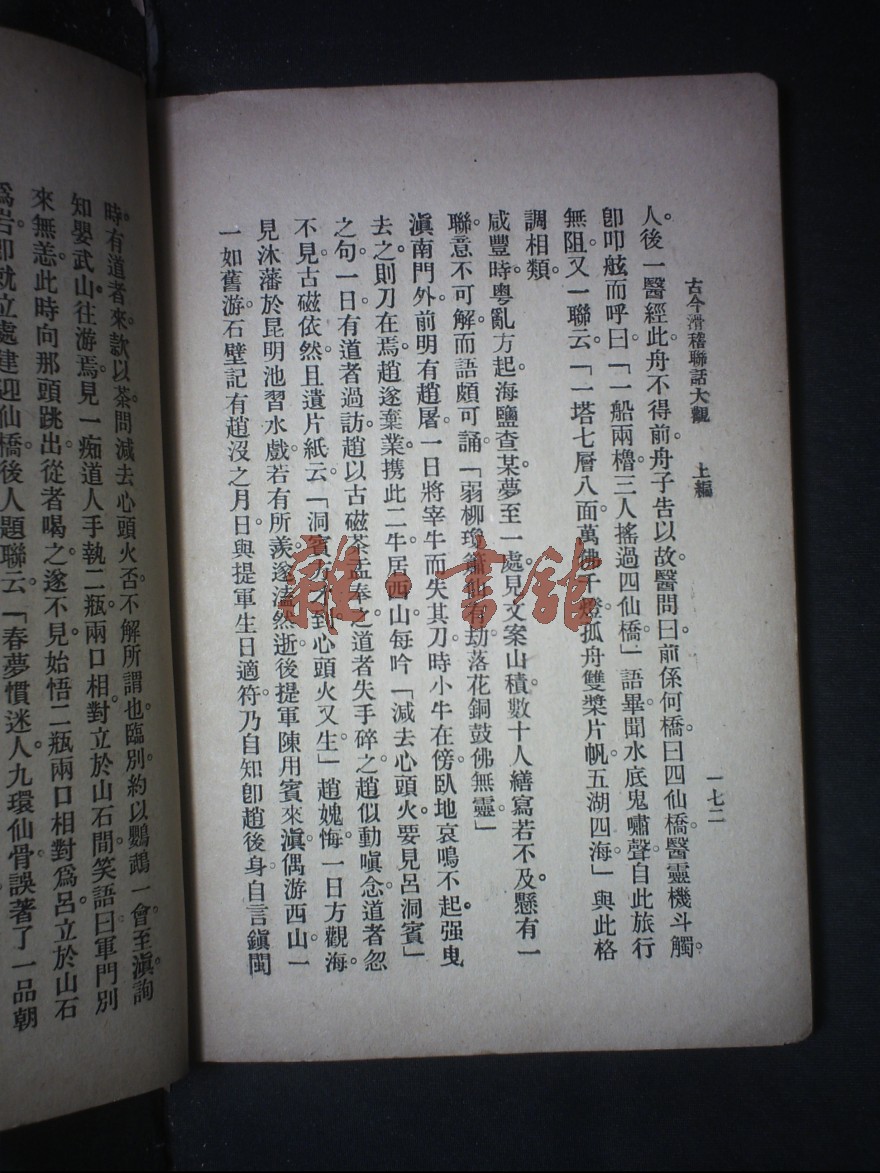 古今滑稽聯話大觀　上編　一七二
人。後一醫經此舟不得前舟子告以故醫問曰前係何橋曰四仙橋醫靈機斗觸。
卽叩舷而呼曰「一船兩櫓三人搖過四仙橋」語畢聞水底鬼嘯聲自此旅行
無阻又一聯云「一塔七層八面萬佛千燈孤舟雙槳片帆五湖四海」與此格
調相類。
咸豐時粵亂方起海鹽查某夢至一處見文案山積數十人繕寫若不及懸有一
聯意不可解而語頗可誦「弱柳瓊簫仙有劫落花銅鼓佛無靈」
滇南門外前明有趙屠一日將宰牛而失其刀時小牛在傍臥地哀鳴不起强曳
去之則刀在焉趙遂棄業携此二牛居西山每吟「減去心頭火要見呂洞賓」
之句一日有道者過訪趙以古磁茶盂奉之道者失手碎之趙似動嗔念道者忽
不見古磁依然且遺片紙云「洞賓方才到心頭火又生」趙媿悔一日方觀海
見沐藩於昆明池習水戲若有所羨遂溘然逝後提軍陳用賓來滇偶游西山一
一如舊游石壁記有趙沒之月日與提軍生日適符乃自知卽趙後身自言鎭閩
時。有道者來款以茶問減去心頭火否不解所謂也臨別約以鸚鵡一會至滇詢
知嬰武山往游焉見一痴道人手執二瓶兩口相對立於山石間笑語曰軍門別
來無恙此時向那頭跳出從者喝之遂不見始悟二瓶兩口相對爲呂立於山石
爲岩卽就立處建迎仙橋後人題聯云「春夢慣迷人九環仙骨誤著了一品朝
雜·書館